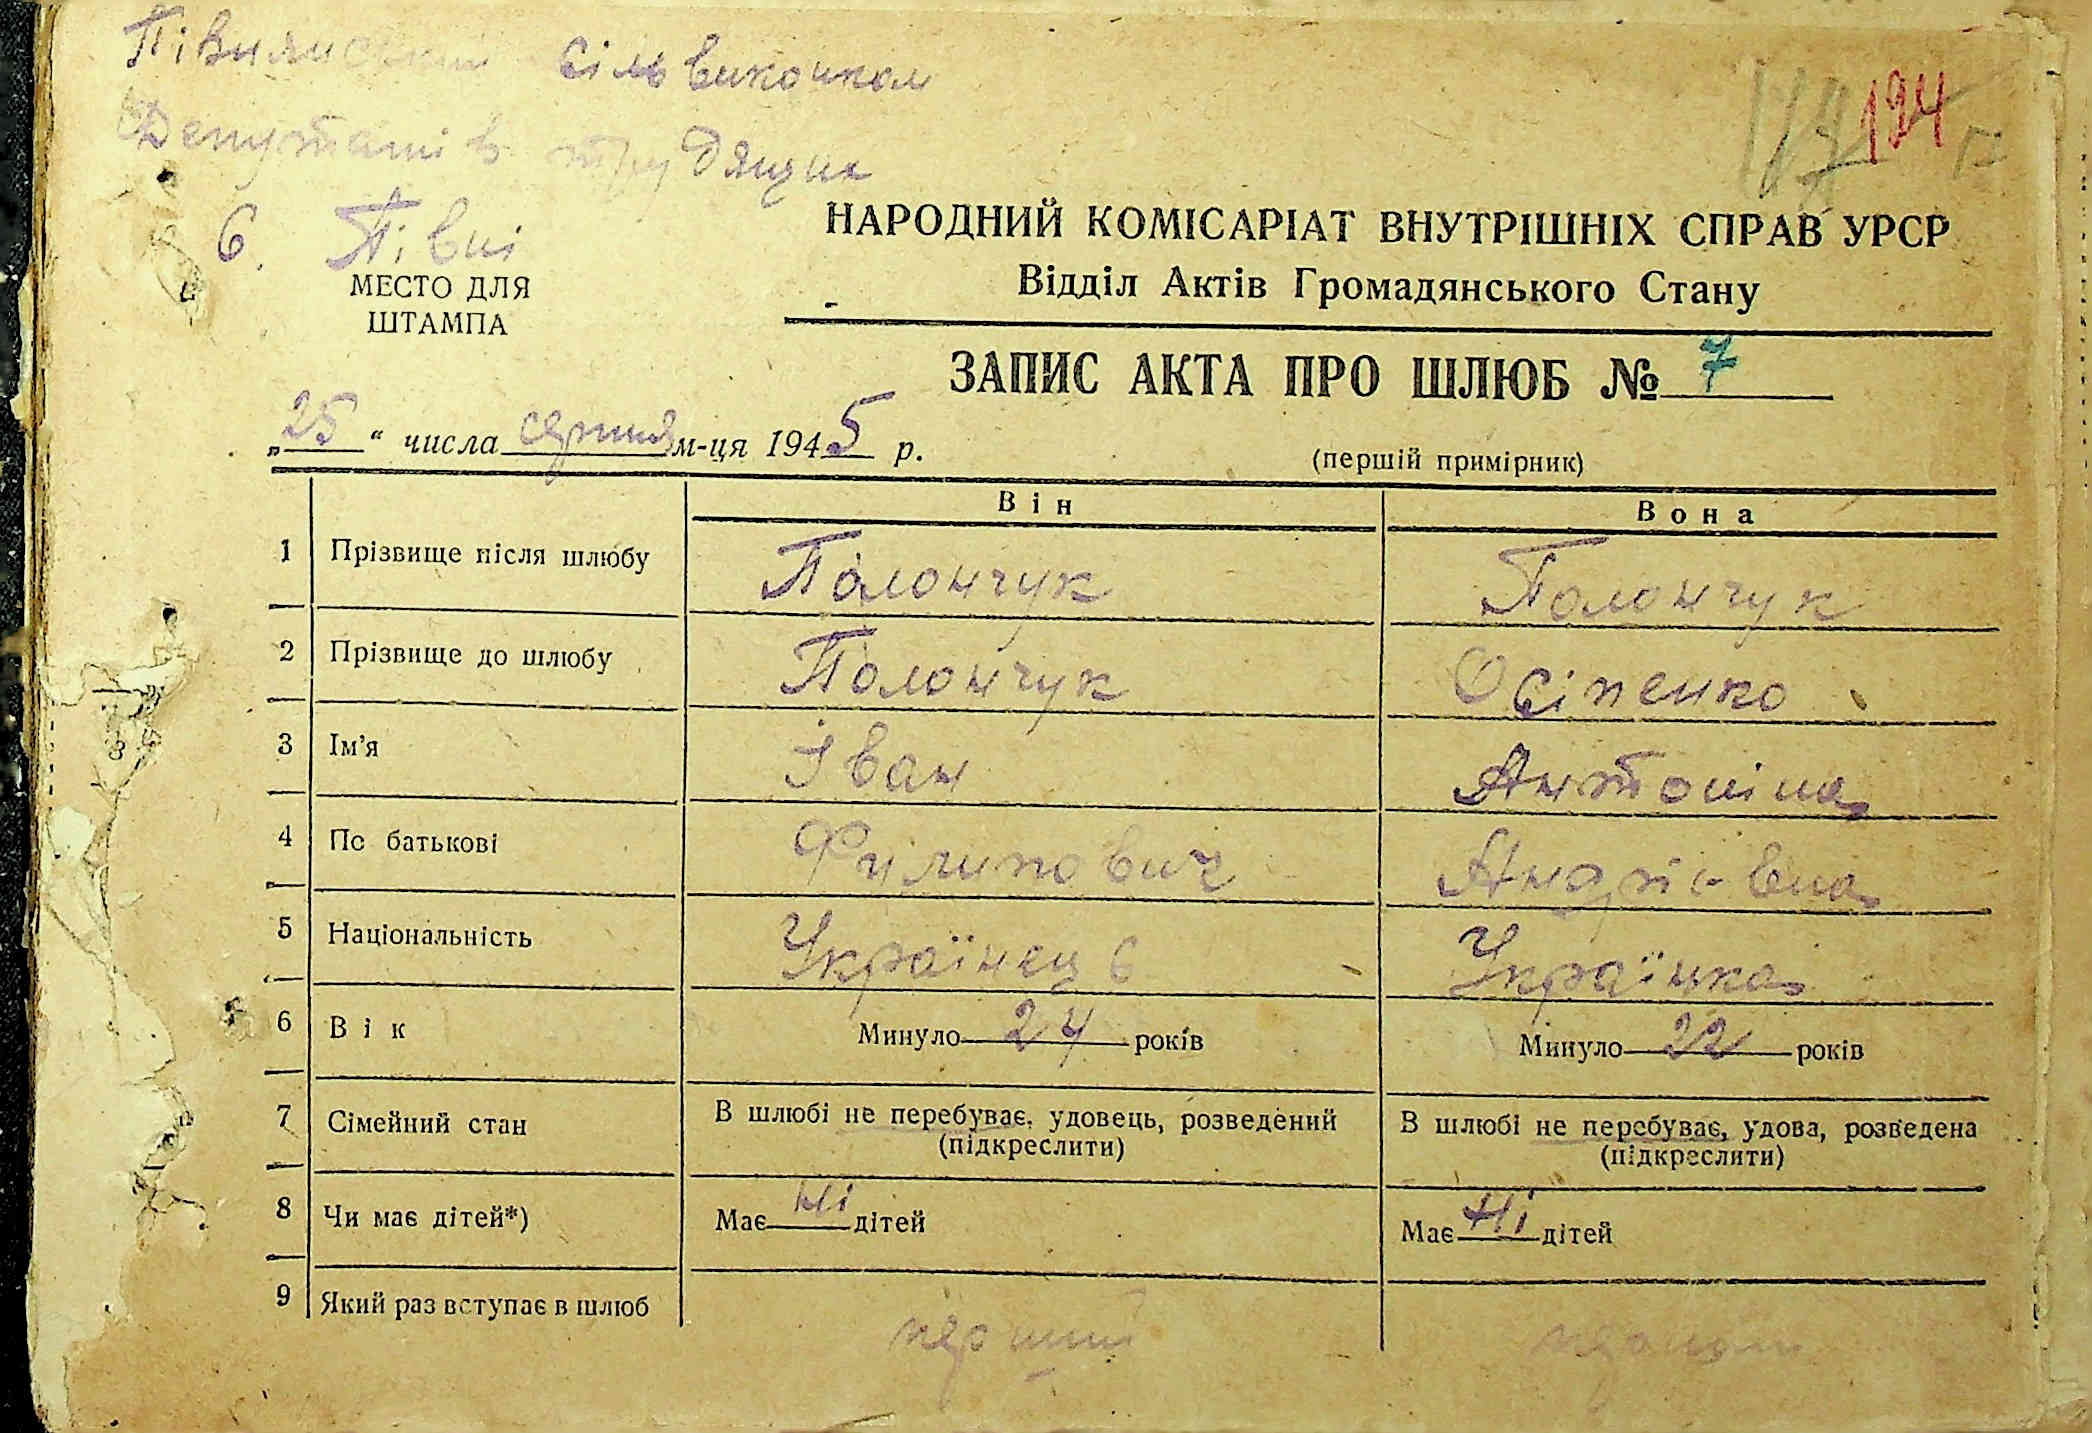 Півнянський сільвиконком
Депутатів трудящих
с. Півні
194
МЕСТО ДЛЯ
ШТАМПА
НАРОДНИЙ КОМІСАРІАТ ВНУТРІШНІХ СПРАВ УРСР
Відділ Актів Громадянського Стану
ЗАПИС АКТА ПРО ШЛЮБ № 7
„25“ числа серпня м-ця 1945 р.
(першій примірник)
Він Вона
1 Прізвище після шлюбу Полончук Полончук
2 Прізвище до шлюбу Полончук Осіпенко
3 Ім’я Іван Антоніна
4 По батькові Филипович Андріївна
5 Національність Українець Українка
6 Вік Минуло 24 років Минуло 22 років
7 Сімейний стан В шлюбі не перебуває, удовець, розведений В шлюбі не перебуває, удова, розведена
(підкреслити) (підкреслити)
8 Чи має дітей*) Має Ні дітей Має Ні дітей
9 Який раз вступає в шлюб перший перший